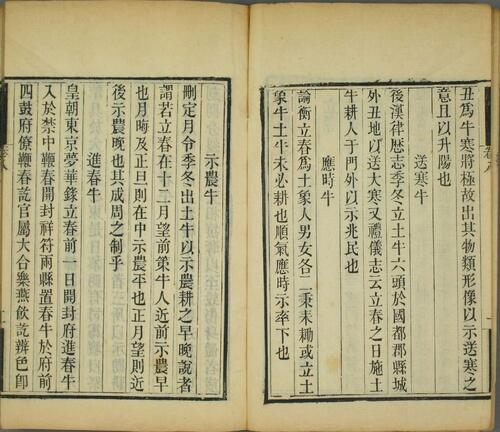 丑爲牛寒將極故出其物類形像以示送寒之
意且以升陽也
送寒牛
後漢律歷志季冬立土牛六頭於國都郡縣城
外丑地以送大寒又禮儀志云立春之日施土
牛耕人于門外以示兆民也
應時牛
論衡立春爲土象人男女各二秉耒鋤或立土
象牛土牛未必耕也順氣應時示率下也
示農牛
刪定月令季冬出土牛以示農耕之早晚說者
謂若立春在十二月望前策牛人近前示農早
也月晦及正旦則在中示農平也正月望則近
後示農晚也其成周之制乎
進春牛
皇朝東京夢華錄立春前一日開封府進春牛
入於禁中鞭春開封祥符兩縣置春牛於府前
四鼓府僚鞭春訖官屬大合樂燕飲訖辨色卽